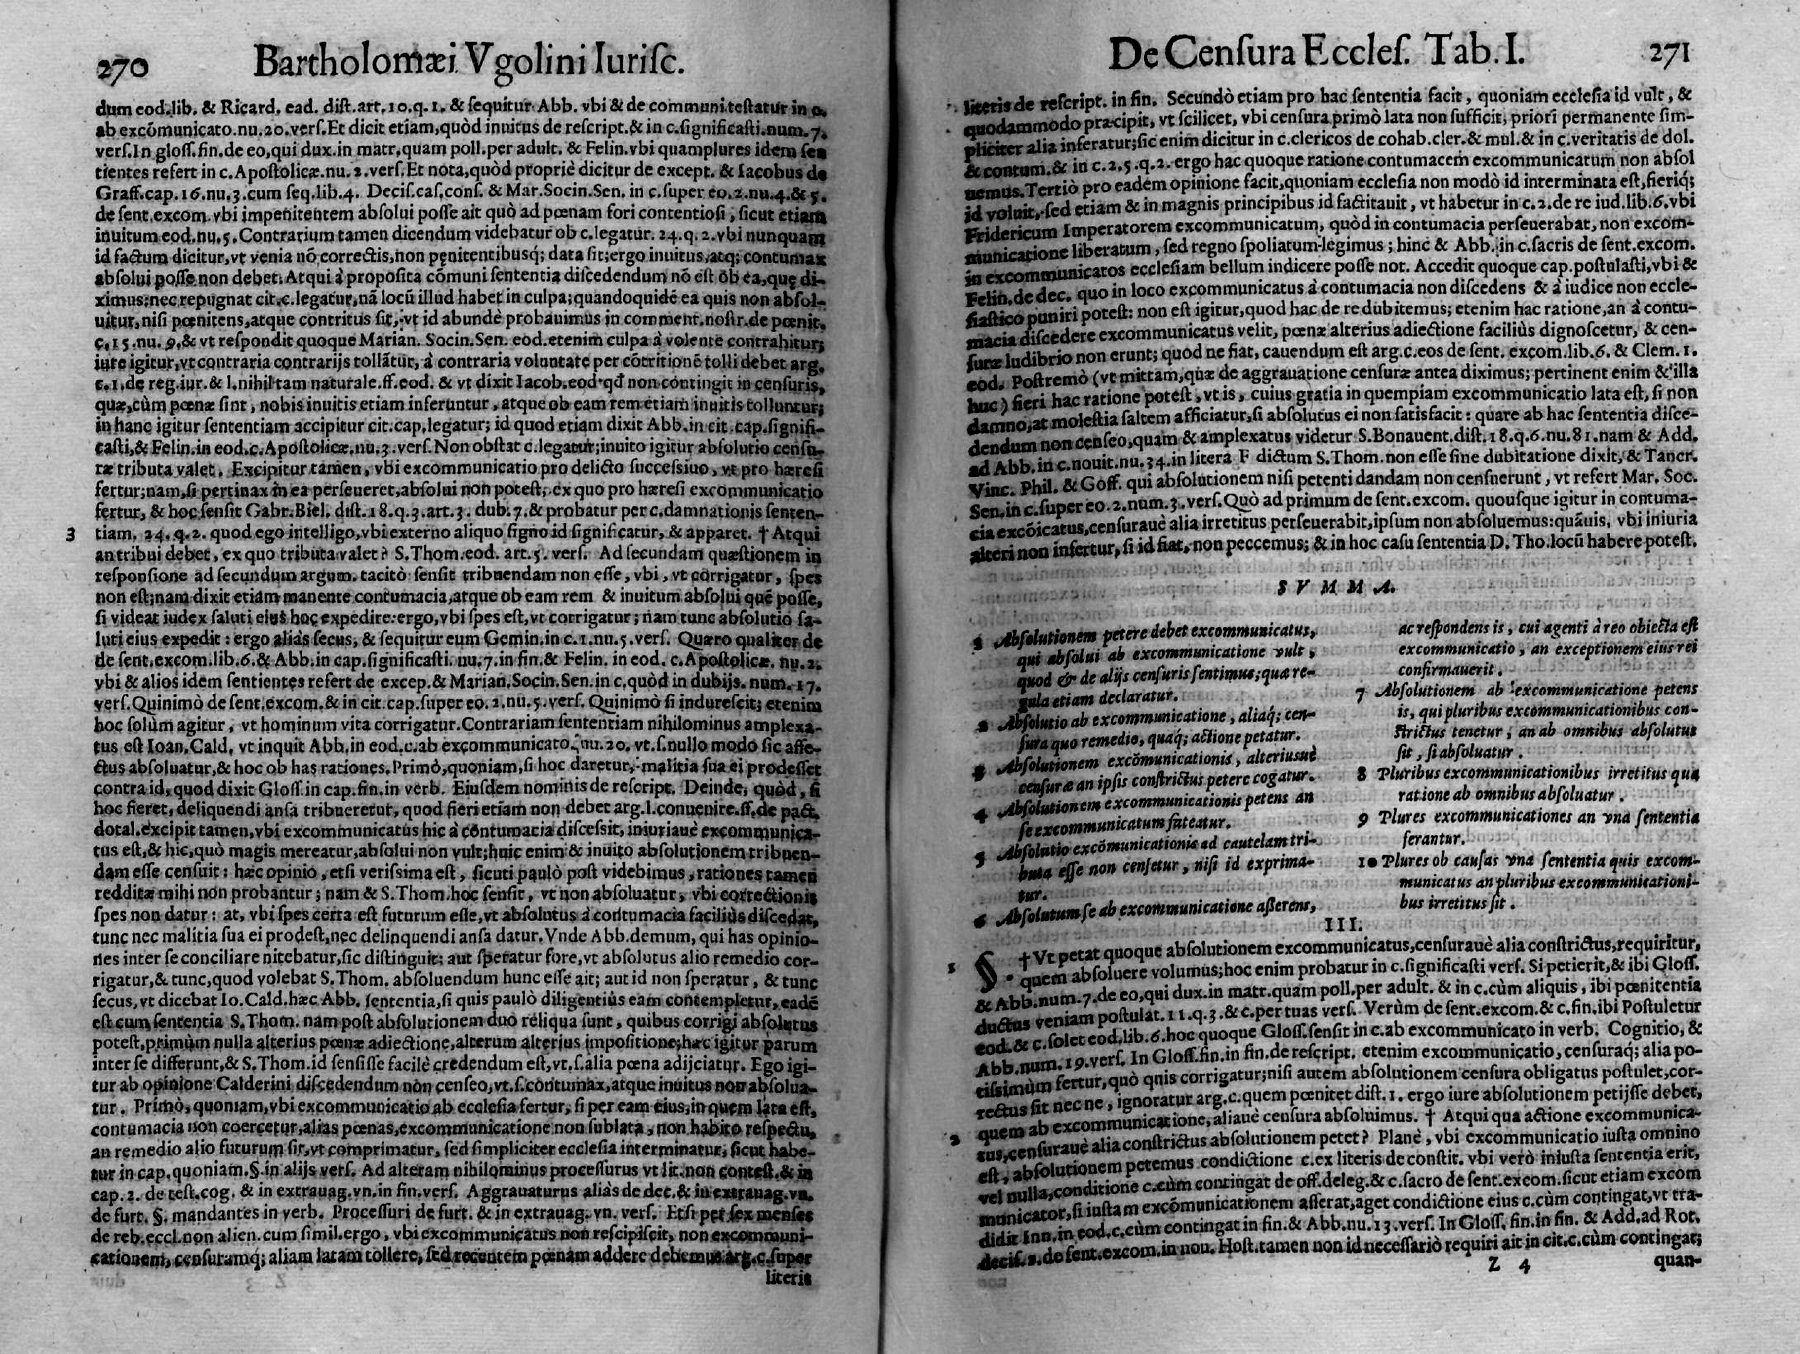 270 Bartholomæi Vgolini Iurisc.
dum eod.lib. & Ricard. ead. dist.art.10.q.1. & sequitur Abb. vbi & de communi.testatur in c.
ab excõmunicato.nu.20.vers.Et dicit etiam,quòd inuitus de rescript.& in c.significasti.num.7.
vers.In gloss.fin.de eo,qui dux.in matr,quam poll.per adult. & Felin.vbi quamplures idem sen
tientes refert in c.Apostolicæ.nu.2.vers.Et nota,quòd propriè dicitur de except. & Iacobus de
Graff.cap.16.nu.3.cum seq.lib.4. Decis.cas,cons. & Mar.Socin.Sen. in c.super eo.2.nu.4.& 5.
de sent.excom.vbi impenitentem absolui posse ait quò ad pœnam fori contentiosi, sicut etiam
inuitum eod.nu.5.Contrarium tamen dicendum videbatur ob c.legatur. 24.q.2.vbi nunquam
id factum dicitur,vt venia nõ correctis,non pęnitentibusq; data sit;ergo inuitus,atq; contumax
absolui posse non debet: Atqui à proposita cõmuni sententia discedendum nõ est ob ea,quę di-
ximus;nec repugnat cit.c.legatur,nã locũ illud habet in culpa;quandoquidẽ ea quis non absol-
uitur,nisi pœnitens,atque contritus sit,:vt id abundè probauimus in comment.nostr.de pœnit.
c.15.nu.9.& vt respondit quoque Marian. Socin.Sen. eod.etenim culpa à volente contrahitur;
iure igitur,vt contraria contrarijs tollãtur, à contraria voluntate per cõtritionẽ tolli debet arg.
c.1.de reg.iur.& l.nihil tam naturale.ff.eod. & vt dixit Iacob.eod.qđ non contingit in censuris,
quæ,cùm pœnæ sint, nobis inuitis etiam inferuntur, atque ob eam rem etiam inuitis tolluntur;
in hanc igitur sententiam accipitur cit.cap,legatur; id quod etiam dixit Abb.in cit.cap.signifi-
casti,& Felin.in eod.c.Apostolicæ.nu.3.vers.Non obstat c.legatur;inuito igitur absolutio censu-
ræ tributa valet. Excipitur tamen, vbi excommunicatio pro delicto successiuo, vt pro hæresi
fertur;nam,si pertinax in ea perseueret,absolui non potest,.ex quo pro hæresi excommunicatio
fertur, & hoc sensit Gabr.Biel. dist.18.q.3.art.3. dub.7.& probatur per c.damnationis senten-
3 tiam. 24.q.2. quod ego intelligo,vbi externo aliquo signo id significatur, & apparet. † Atqui
an tribui debet, ex quo tributa valet? S.Thom.eod. art.5. vers. Ad secundam quæstionem in
responsione ad secundum argum. tacitò sensit tribuendam non esse, vbi, vt corrigatur, spes
non est;nam dixit etiam manente contumacia,atque ob eam rem & inuitum absolui quẽ posse,
si videat iudex saluti eius hoc expedire:ergo,vbi spes est,vt corrigatur; nam tunc absolutio sa-
luti eius expedit: ergo aliàs secus, & sequitur eum Gemin.in c.1.nu.5.vers. Quæro qualiter de
de sent.excom.lib.6.& Abb.in cap.significasti. nu.7.in fin.& Felin. in eod. c.Apostolicæ. nu.2.
vbi & alios idem sentientes refert de excep.& Marian.Socin.Sen.in c,quòd in dubijs. num.17.
vers.Quinimò de sent.excom.& in cit.cap.super eo.2.nu.5.vers. Quinimò si indurescit; etenim
hoc solùm agitur, vt hominum vita corrigatur.Contrariam sententiam nihilominus amplexa-
tus est Ioan.Cald. vt inquit Abb.in eod.c.ab excommunicato.nu.20.vt.s.nullo modo sic affe-
ctus absoluatur,& hoc ob has rationes.Primò,quoniam,si hoc daretur, malitia sua ei prodesset
contra id,quod dixit Gloss.in cap.fin.in verb. Eiusdem nominis de rescript. Deinde, quòd, si
hoc fieret,deliquendi ansa tribueretur, quod fieri etiam non debet arg.l.conuenire.ff.de pact.
dotal.excipit tamen,vbi excommunicatus hic à contumacia discessit,iniuriauè excommunica-
tus est,& hic,quò magis mereatur,absolui non vult;huic enim & inuito absolutionem tribuen-
dam esse censuit: hæc opinio, etsi verissima est, sicuti paulò post videbimus, rationes tamen
redditæ mihi non probantur; nam & S.Thom.hoc sensit, vt non absoluatur, vbi correctionis
spes non datur: at, vbi spes certa est futurum esse,vt absolutus à contumacia faciliùs discedat,
tunc nec malitia sua ei prodest,nec delinquendi ansa datur.Vnde Abb.demum, qui has opinio-
nes inter se conciliare nitebatur,sic distinguit: aut speratur fore,vt absolutus alio remedio cor-
rigatur,& tunc,quod volebat S.Thom. absoluendum hunc esse ait; aut id non speratur, & tunc
secus,vt dicebat Io.Cald.hæc Abb. sententia,si quis paulò diligentiùs eam contempletur,eadẽ
est cum sententia S.Thom. nam post absolutionem duo reliqua sunt, quibus corrigi absolutus
potest,primùm nulla alterius pœnæ adiectione,alterum alterius impositione;hæc igitur parum
inter se differunt,& S.Thom.id sensisse facilè credendum est,vt.s.alia pœna adijciatur. Ego igi-
tur ab opinione Calderini discedendum non censeo,vt.s.contumax,atque inuitus non absolua-
tur. Primò,quoniam,vbi excommunicatio ab ecclesia fertur, si per eam eius,in quem lata est,
contumacia non coercetur,alias pœnas,excommunicatione non sublata, non habito respectu,
an remedio alio futurum sit,vt comprimatur, sed simpliciter ecclesia interminatur, sicut habe-
tur in cap.quoniam.§.in alijs vers. Ad alteram nihilominus processurus vt lit.non contest.& in
cap.2. de test.cog. & in extrauag.vn.in fin.vers. Aggrauaturus aliàs de dec.& in extrauag.vn.
de furt. §. mandantes in verb. Processuri de furt. & in extrauag.vn. vers. Etsi per sex menses
de reb.eccl.non alien.cum simil.ergo, vbi excommunicatus non rescipiscit, non excommuni-
cationem, censuramq; aliam latam tollere, sed recentem pœnam addere debemus arg.c.super
literis
De Censura Eccles. Tab. I. 271
literis de rescript. in fin. Secundò etiam pro hac sententia facit, quoniam ecclesia id vult, &
quodammodo præcipit, vt scilicet, vbi censura primò lata non sufficit, priori permanente sim-
pliciter alia inferatur;sic enim dicitur in c.clericos de cohab.cler.& mul.& in c.veritatis de dol.
& contum.& in c.2.5.q.2.ergo hac quoque ratione contumacem excommunicatum non absol
uemus.Tertiò pro eadem opinione facit,quoniam ecclesia non modò id interminata est,fieriq;
id voluit, sed etiam & in magnis principibus id factitauit, vt habetur in c.2.de re iud.lib.6.vbi
Fridericum Imperatorem excommunicatum, quòd in contumacia perseuerabat, non excom-
municatione liberatum, sed regno spoliatum legimus; hinc & Abb.in c.sacris de sent.excom.
in excommunicatos ecclesiam bellum indicere posse not. Accedit quoque cap.postulasti,vbi &
Felin.de dec. quo in loco excommunicatus à contumacia non discedens & à iudice non eccle-
siastico puniri potest: non est igitur,quod hac de re dubitemus; etenim hac ratione,an à contu-
macia discedere excommunicatus velit, pœnæ alterius adiectione faciliùs dignoscetur, & cen-
suræ ludibrio non erunt; quod ne fiat, cauendum est arg.c.eos de sent. excom.lib.6. & Clem.1.
eod. Postremò (vt mittam,quæ de aggrauatione censuræ antea diximus; pertinent enim & illa
huc) fieri hac ratione potest, vt is, cuius gratia in quempiam excommunicatio lata est, si non
damno,at molestia saltem afficiatur,si absolutus ei non satisfacit: quare ab hac sententia disce-
dendum non censeo,quam & amplexatus videtur S.Bonauent.dist.18.q.6.nu.81.nam & Add.
ad Abb.in c.nouit.nu.34.in litera F dictum S.Thom.non esse sine dubitatione dixit, & Tancr.
Vinc. Phil. & Goff. qui absolutionem nisi petenti dandam non censuerunt, vt refert Mar. Soc.
Sen.in c.super eo.2.num.3.vers.Quò ad primum de sent.excom. quousque igitur in contuma-
cia excõicatus,censurauè alia irretitus perseuerabit,ipsum non absoluemus:quãuis, vbi iniuria
alteri non infertur, si id fiat, non peccemus; & in hoc casu sententia D. Tho.locũ habere potest.
SVMMA.
1 Absolutionem petere debet excommunicatus,
qui absolui ab excommunicatione vult,
quod & de alijs censuris sentimus;quæ re-
gula etiam declaratur.
2 Absolutio ab excommunicatione, aliaq; cen-
sura quo remedio, quaq; actione petatur.
3 Absolutionem excõmunicationis, alteriusuè
censuræ an ipsis constrictus petere cogatur.
4 Absolutionem excommunicationis petens an
se excommunicatum fateatur.
5 Absolutio excõmunicationis ad cautelam tri-
buta esse non censetur, nisi id exprima-
tur.
6 Absolutum se ab excommunicatione asserens,
ac respondens is, cui agenti à reo obiecta est
excommunicatio, an exceptionem eius rei
confirmauerit.
7 Absolutionem ab excommunicatione petens
is, qui pluribus excommunicationibus con-
strictus tenetur, an ab omnibus absolutus
sit, si absoluatur.
8 Pluribus excommunicationibus irretitus qua
ratione ab omnibus absoluatur.
9 Plures excommunicationes an vna sententia
ferantur.
10 Plures ob causas vna sententia quis excom-
municatus an pluribus excommunicationi-
bus irretitus sit.
III.
1 § † Vt petat quoque absolutionem excommunicatus,censurauè alia constrictus,requiritur,
quem absoluere volumus;hoc enim probatur in c.significasti vers. Si petierit,& ibi Gloss.
& Abb.num.7.de eo,qui dux.in matr.quam poll.per adult. & in c.cùm aliquis, ibi pœnitentia
ductus veniam postulat.11.q.3.& c.per tuas vers. Verùm de sent.excom.& c.fin.ibi Postuletur
eod.& c.solet eod.lib.6.hoc quoque Gloss.sensit in c.ab excommunicato in verb. Cognitio, &
Abb.num.19.vers. In Gloss.fin.in fin.de rescript. etenim excommunicatio, censuraq; alia po-
tissimùm fertur,quò quis corrigatur;nisi autem absolutionem censura obligatus postulet,cor-
rectus sit nec ne, ignoratur arg.c.quem pœnitet dist.1. ergo iure absolutionem petijsse debet,
quem ab excommunicatione, aliauè censura absoluimus. † Atqui qua actione excommunica-
2 tus,censurauè alia constrictus absolutionem petet? Planè, vbi excommunicatio iusta omnino
est, absolutionem petemus condictione c.ex literis de constit. vbi verò iniusta sententia erit,
vel nulla,conditione c.cùm contingat de off.deleg.& c.sacro de sent.excom.sicut etiam excom
municator,si iustam excõmunicationem asserat,aget condictione eius c.cùm contingat,vt tra-
didit Inn.in eod.c.cùm contingat in fin.& Abb.nu.13.vers. In Gloss. fin.in fin. & Add.ad Rot.
decis.2.de sent.excom.in nou. Host.tamen non id necessariò requiri ait in cit.c.cùm contingat;
Z 4 quan-